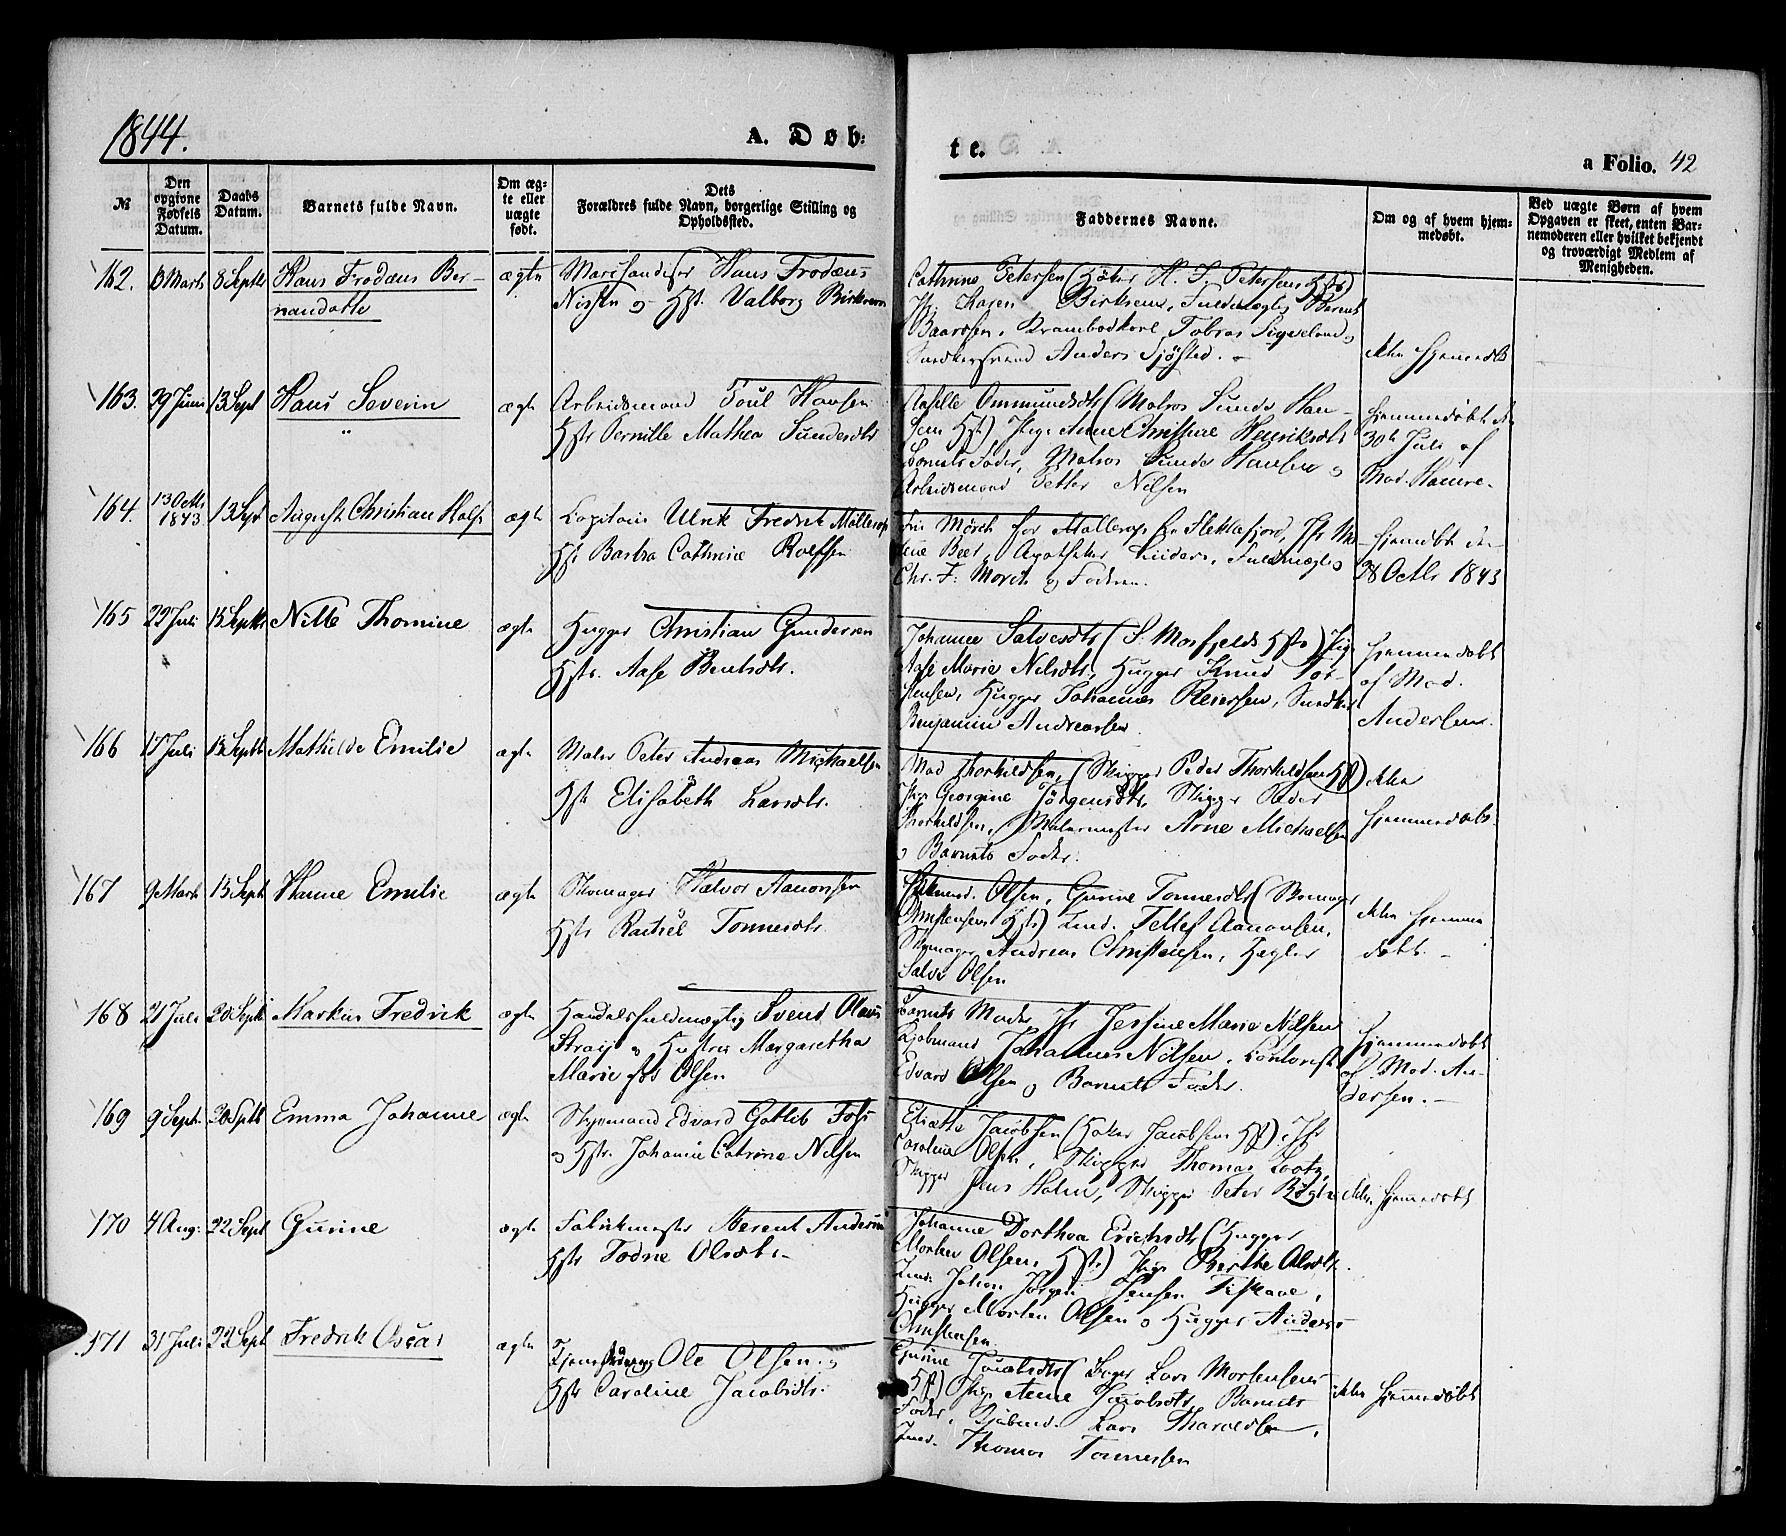 1844.
A. Døb-
te.
a Folio. 42
№
Den opgivne Fødsels Datum.
Daabs Datum.
Barnets fulde Navn.
Om æg-
te eller
uægte
født.
Dets
Forældres fulde Navn, borgerlige Stilling og
Opholdssted.
Faddernes Navne.
Om og af hvem hjem-
medøbt.
Ved uægte Børn af hvem
Opgaven er skeet, enten Bar-
nemoderen eller hvilket bekjendt
og troværdigt Medlem af
Menigheden.
162. 6 Marts 8 Septbr Hans Frodæus Ber-
nandotte
ægte
Hans Frodæus
Nissen og Hst. Valborg Birkeven
Cathrine Petersen (Høker H. J. Petersens Hst)
Jfr. Karen Fuldmægtig Berent
Baarsen, Krambodkarl Tobias Sigveland og
Snedkersvend Anders Sjøsted. -
ikke hjemmedbt
163. 29 Juni 13 Sept Hans Severin
ægte
Arbeidsmand Poul Hansen
Hstr Pernille Mathea Sundesdtr
Ommundsdtr (Matros Sunde Han-
sens Hst) Pige Anne Christine Henriksdtr
Barnets Fader, Matros Sunde Hansen og
Arbeidsmand Petter Nilsen
hjemmedøbt d.
30te Juli af
Mad. Hamre.
164. 13 Octbr 1843 13 Sept August Christian Rolfs
ægte
Capitain Ulrik Fredrik Møllerop
Hst Barbra Cathrine Rolfsen
Fru Mørch for Møllerop fra Flekkefjord, Jfr Ma-
lene Beer, Apotheker Lüders, Fuldmægtig
Chr. F. Mørch og Faderen.
hjemdbt den
28 Octbr 1843
165 22 Juli 15 Septbr Nille Thomine
ægte
Hugger Christian Gundersen
Hstr. Aase Bentsdtr.
Johanne Salvesdtr (S. Mosfjelds Hstr) Pige
Aase Marie Nilsdtr, Hugger Knud Tor-
stensen, Hugger Johannes Reiersen, Snedker
Benjamin Andreassen
Hjemmedøbt
af Mad.
Andersens.
166 17 Juli 15 Septb Mathilde Emilie
ægte
Maler Peter Andreas Michaelsen
Hst Elisabeth Larsdtr.
Mad Thorkildsen, (Skipper Peder Thorkildsens Hst)
Pige Georgine Jørgensdtr, Skipper Peder
Thorkildsen, Malermester Arne Michaelsen
og Barnets Fader.
ikke
hjemmedøbt.
167 9 Marts 15 Septb Hanne Emilie
ægte
Skomager Halvor Aanonsen
Hstr Rachel Tonnesdtr.
Olsen, Gurine Tonnesdtr (Skomager
Christensens Hst) Tellef Aanonsen,
Skomager Andreas Christensen, Hægler
Salve Olsen
ikke hjemme
døbt. -
168 21 Juli 20 Septb Markus Fredrik
ægte
Handelsfuldmægtig Svend Olaus
Stray og Hustru Margaretha
Marie født Olsen
Barnets Moder Jfr Jessine Marie Nilsen
Kjøbmand Johannes Nilsen, Contorist
Edvard Olsen og Barnets Fader.
Hjemmedøbt
af Mad. An-
dersen. -
169 9 Sept. 20 Sptb Emma Johanne
ægte
Styrmand Edvard Gotlib Foss
og Hstr. Johanne Catrine Nilsen
Jacobsen (Høker Jacobsens Hst). Jfr
Carolina Olsen, Skipper Thomas Lootz,
Skipper Jens Holm, Skipper Peter
ikke hjemmedøbt
170 4 Aug: 22 Sept Gurine
ægte
Fabrikmester Berent Andersen
Hstr Todne Olsdtr. -
Johanne Dorthea Erichsdtr (Hugger
Morten Olsen, Hst.) Pige Berthe Olsdtr.
Johan Jørgen Jensen
Hugger Morten Olsen og Hugger Anders
Christensen.
171 31 Juli 22 Sept Fredrik Oscar
ægte
Ole Olsen og
Hstr Caroline Jacobsdtr.
Gurine Jacobsdtr Lars Mortensens
Hst) Pige Anne Jacobsdtr Barnets
Fader, Lars Tharaldsen,
Thomas Tonnessen
ikke hjemmedøbt